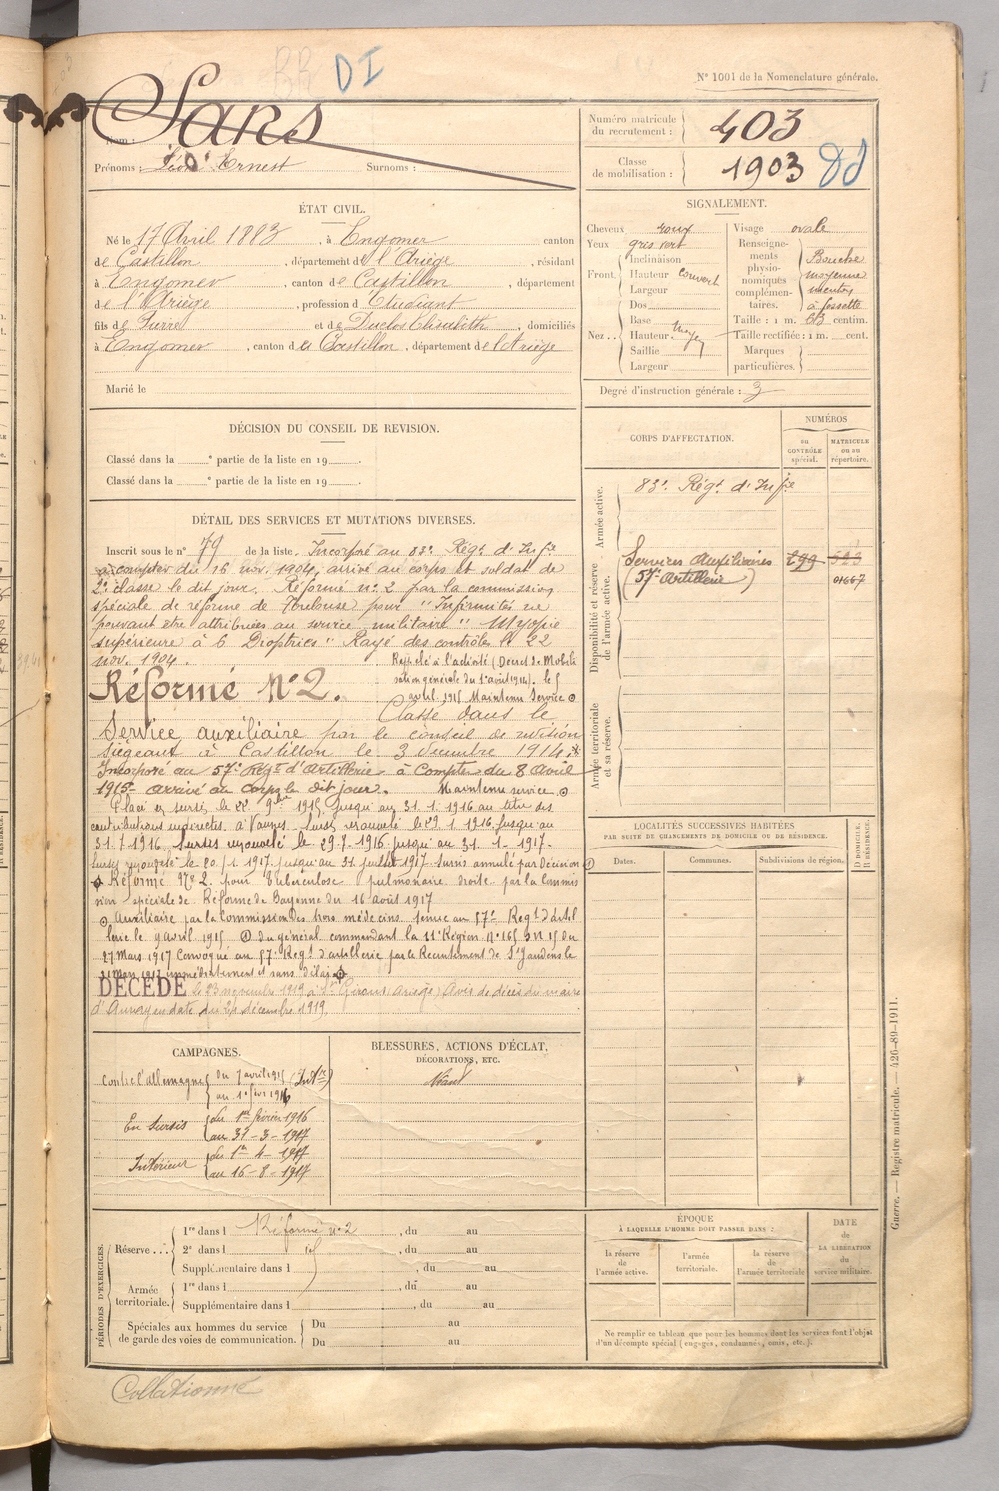 DI
N° 1001 de la Nomenclature générale.
Nom : Sans
Prénoms : Léon Ernest Surnoms :
Numéro matricule du recrutement : 403
Classe de mobilisation : 1903
ÉTAT CIVIL.
Né le 17 Avril 1883, à Engomer canton
de Castillon, département de l'Ariège, résidant
à Engomer, canton de Castillon, département
de l'Ariège, profession d'Etudiant
fils de Pierre et de Duclos Elisabeth, domiciliés
à Engomer, canton de Castillon, département de l'Ariège
Marié le
SIGNALEMENT.
Cheveux roux
Yeux gris vert
Front. Inclinaison
Hauteur couvert
Largeur
Nez. Dos
Base
Hauteur moyen
Saillie
Largeur
Visage ovale
Renseignements physionomiques complémentaires. Bouche
moyenne
menton
à fossette
Taille : 1 m. 63 centim.
Taille rectifiée : 1 m. cent.
Marques particulières.
Degré d'instruction générale : 3
DÉCISION DU CONSEIL DE REVISION.
Classé dans la ° partie de la liste en 19 .
Classé dans la ° partie de la liste en 19 .
CORPS D'AFFECTATION.
NUMÉROS
au CONTRÔLE spécial.
MATRICULE ou au répertoire.
Armée active.
83e Régt d'Infie
Disponibilité et réserve de l'armée active.
Services Auxiliaires 299 523
(57e Artillerie) 01667
Armée territoriale et sa réserve.
DÉTAIL DES SERVICES ET MUTATIONS DIVERSES.
Inscrit sous le n° 79 de la liste. Incorporé au 83e Régt d'Infie
à compter du 16 nov. 1904, arrivé au corps et soldat de
2e classe le dit jour. Réformé n° 2 par la commission
spéciale de réforme de Toulouse pour "Infirmités ne
pouvant être attribuées au service militaire" Myopie
supérieure à 6 Dioptries" Rayé des contrôles le 22
nov. 1904.
Réformé N° 2.
Rappelé à l'activité (Décret de Mobili
sation générale du 1er août 1914). le
avril 1915 Maintenu Service
Classé dans le
Service auxiliaire par le conseil de revision
siégeant à Castillon le 3 décembre 1914.
Incorporé au 57e Régt d'Artillerie à compter du 8 Avril
1915 arrivé au corps le dit jour. Maintenu service
Placé en sursis le 22 9bre 1915 jusqu'au 31.1.1916 au titre des
contributions indirectes, à Vannes. Sursis renouvelé le 29.1.1916 jusqu'au
31.7.1916. Sursis renouvelé le 29.7.1916 jusqu'au 31.1.1917.
Sursis renouvelé le 20.1.1917 jusqu'au 31 juillet 1917 sursis annulé par Décision
Réformé N° 2 pour tuberculose pulmonaire droite par la Commis
sion spéciale de Réforme de Bayonne du 16 août 1917
Auxiliaire par la Commission des trois médecins tenue au 57e Régt d'artil
lerie le 9 avril 1915 du général commandant la 11e Région N° 165 du
27 Mars 1917 Convoqué au 57e Régt d'artillerie par le Recrutement de St Gaudens le
31 Mars 1917 immédiatement et sans délai
DÉCÉDÉ le 23 novembre 1919 à St Girons (Ariège) Avis de décès du maire
en date du 24 décembre 1919
LOCALITÉS SUCCESSIVES HABITÉES
PAR SUITE DE CHANGEMENTS DE DOMICILE OU DE RÉSIDENCE.
Dates. Communes. Subdivisions de région.
D DOMICILE.
R RÉSIDENCE.
CAMPAGNES.
Contre l'Allemagne du 7 avril 1915
au 1er févr 1916
En Sursis du 1er février 1916
au 31-3-1917
Intérieur du 1er-4-1917
au 16-8-1917
BLESSURES, ACTIONS D'ÉCLAT,
DÉCORATIONS, ETC.
Néant
PÉRIODES D'EXERCICES.
Réserve... 1re dans l Réformé n° 2, du au
2e dans l id , du au
Supplémentaire dans l , du au
Armée territoriale. 1re dans l , du au
Supplémentaire dans l , du au
Spéciales aux hommes du service de garde des voies de communication. Du au
Du au
ÉPOQUE
À LAQUELLE L'HOMME DOIT PASSER DANS :
la réserve de l'armée active.
l'armée territoriale.
la réserve de l'armée territoriale
DATE
de
LA LIBÉRATION
du
service militaire.
Ne remplir ce tableau que pour les hommes dont les services font l'objet
d'un décompte spécial (engagés, condamnés, omis, etc.).
Guerre. — Registre matricule. — 426-89-1911.
Collationné